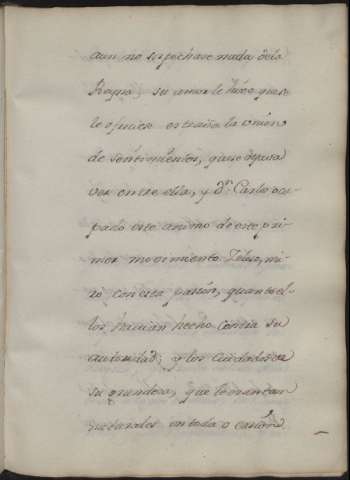 aun no sospechase nada dela
Reyna; su amor le hizo que
le ofuiese estraña la union
de sentimientos, que repara
va entre ella, y Dn. Carlos ocu
pado este animo de este pri
mer movimiento Zeloso, mi
ro con esta pasion, quanto el
los havian hecho contra su
autoridad; y los cuidados de
su grandeza, que le eran tan
naturales en toda ocasion